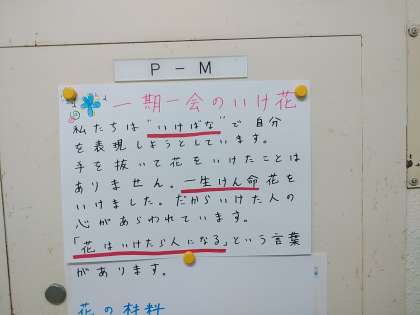 P-M
一期一会のいけ花
私たちは"いけばな"で自分
を表現しようとしています。
手を抜いて花をいけたことは
ありません。一生けん命花を
いけました。だからいけた人の
心があらわれています。
「花はいけたら人になる」という言葉
があります。
花の材料